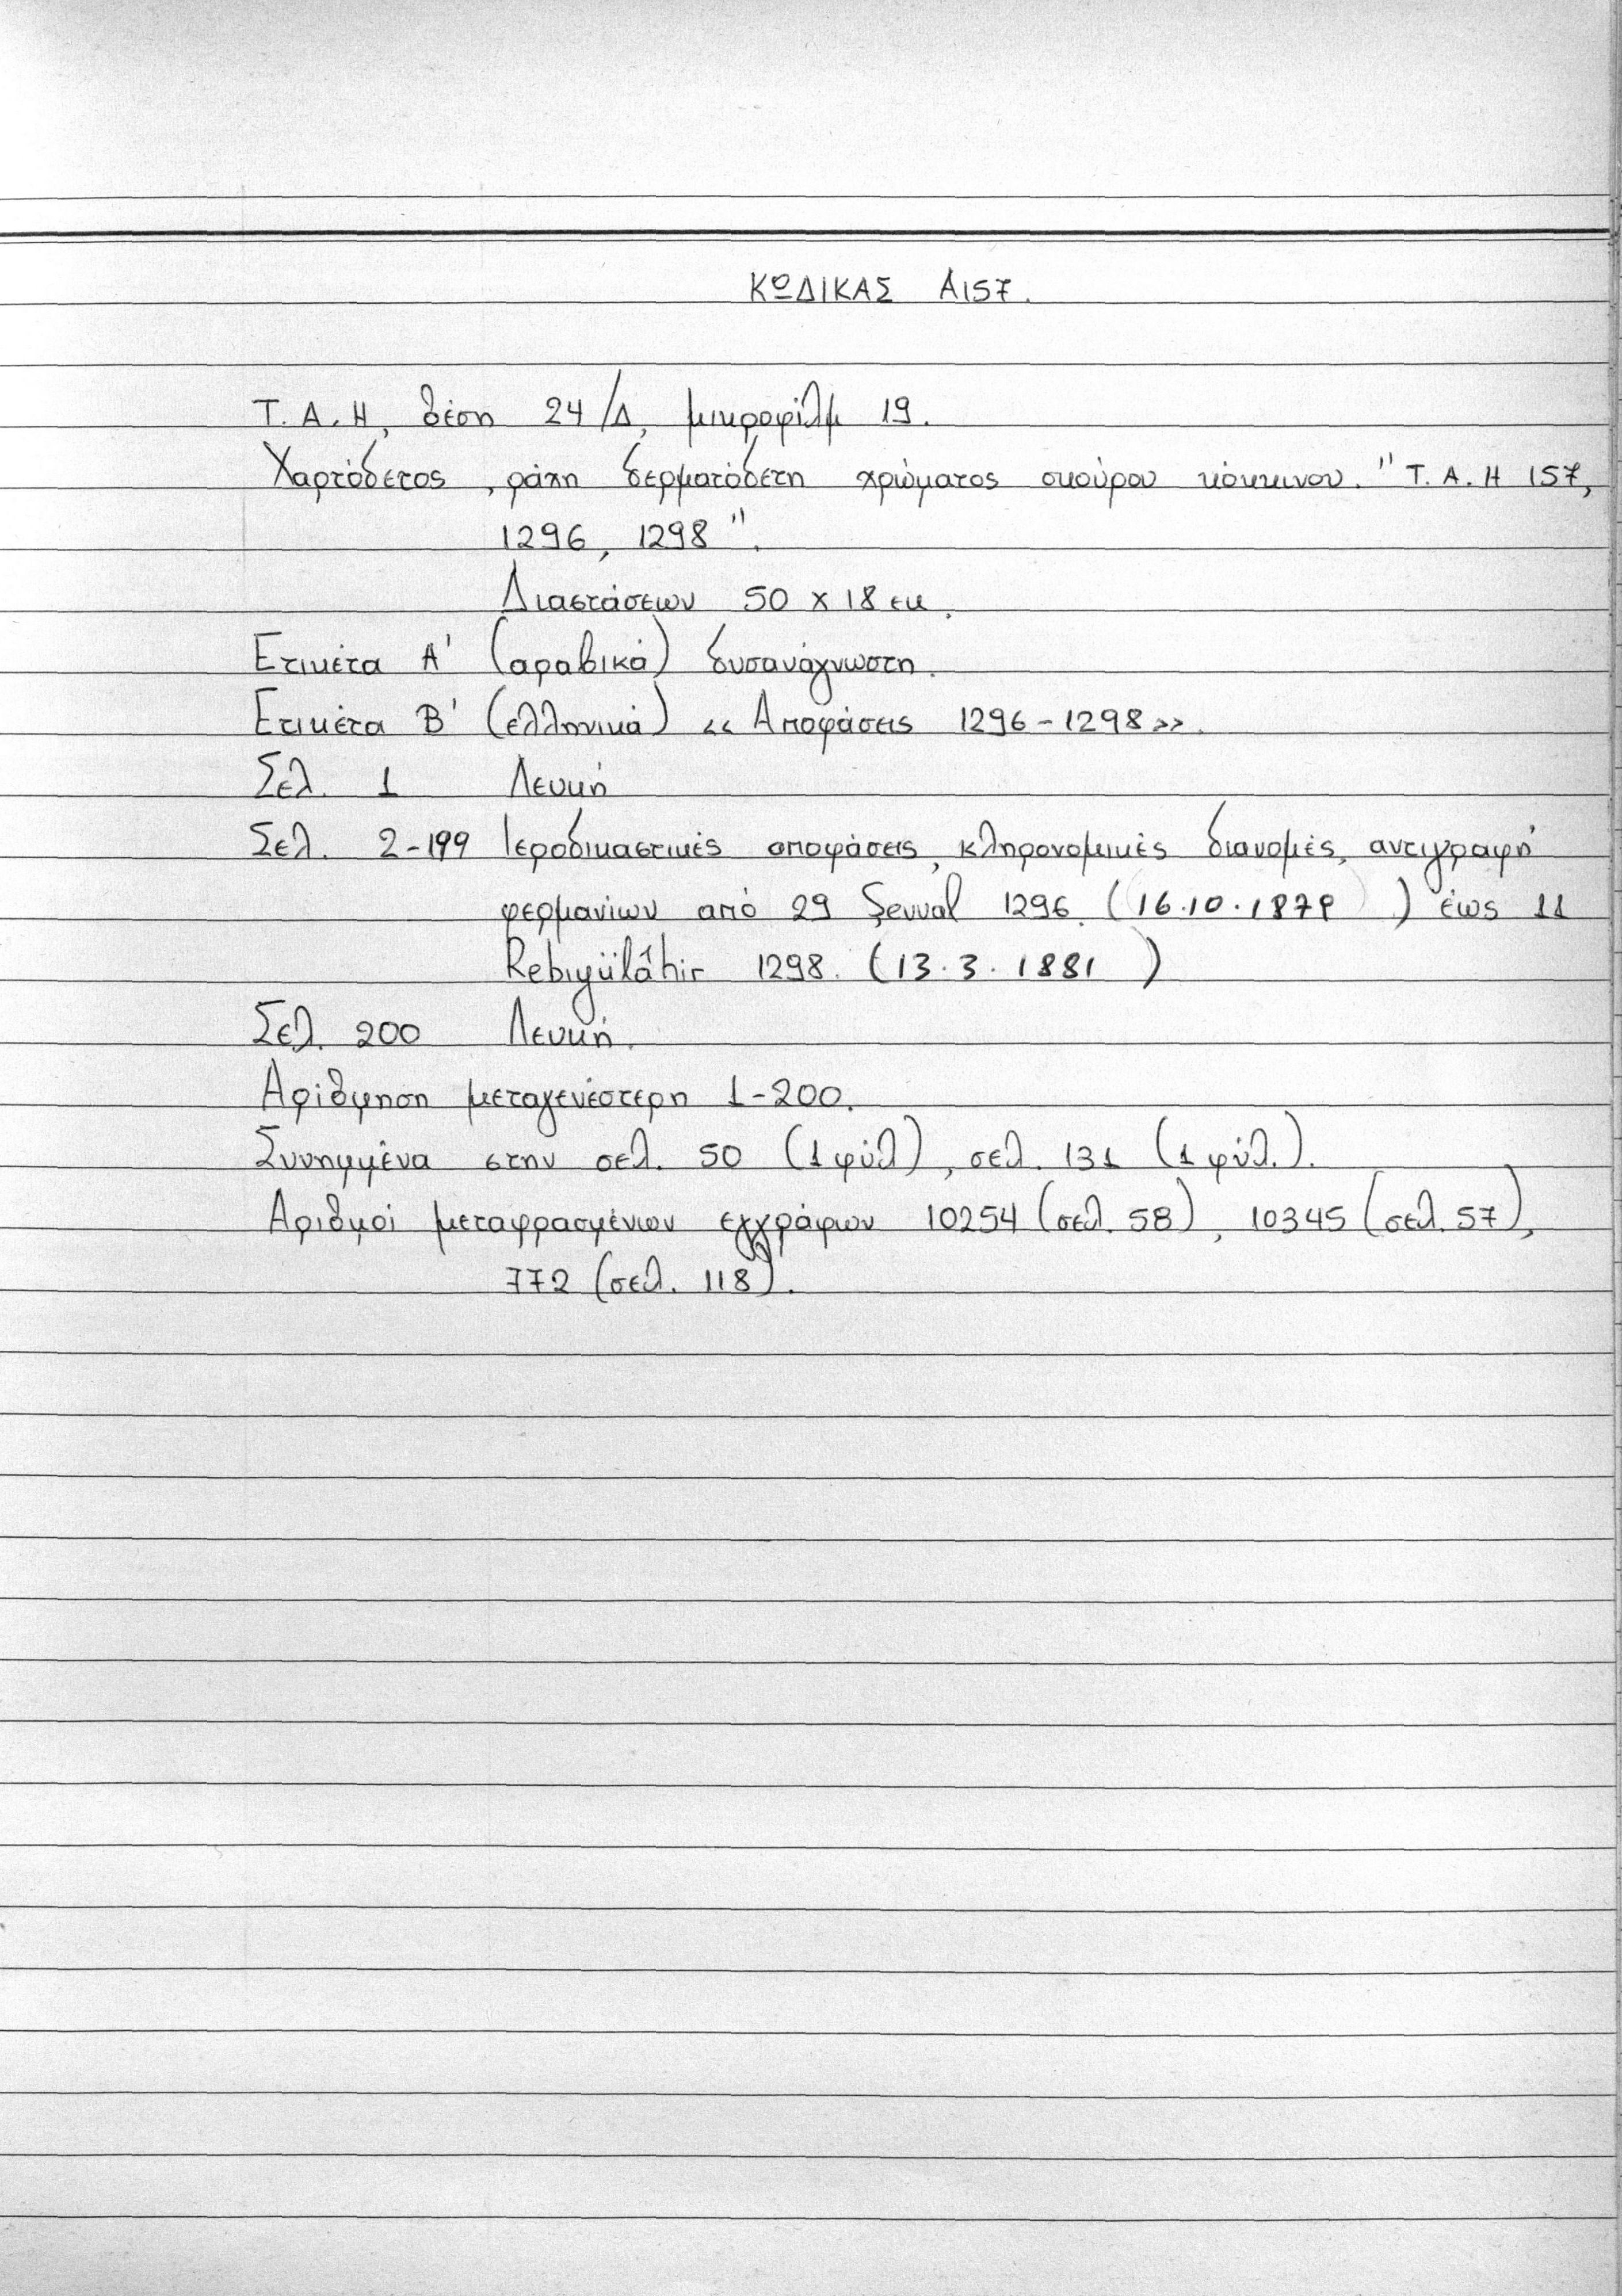 ΚΩΔΙΚΑΣ Α157.
Τ.Α.Η, θέση 24/Δ, μικροφίλμ 19.
Χαρτόδετος, ράχη δερματόδετη χρώματος σκούρου κόκκινου. "Τ.Α.Η 157,
1296, 1298".
Διαστάσεων 50 x 18 εκ.
Ετικέτα Α' (αραβικά) δυσανάγνωστη.
Ετικέτα Β' (ελληνικά) «Αποφάσεις 1296-1298».
Σελ. 1 Λευκή
Σελ. 2-199 Ιεροδικαστικές αποφάσεις, κληρονομικές διανομές, αντιγραφή
φερμανίων από 29 Şevval 1296. (16.10.1879 ) έως 11
Rebıyülâhir 1298. (13.3.1881 )
Σελ. 200 Λευκή.
Αρίθμηση μεταγενέστερη 1-200.
Συνημμένα στην σελ. 50 (1 φύλ), σελ. 131 (1 φύλ.).
Αριθμοί μεταφρασμένων εγγράφων 10254 (σελ. 58), 10345 (σελ. 57),
772 (σελ. 118).